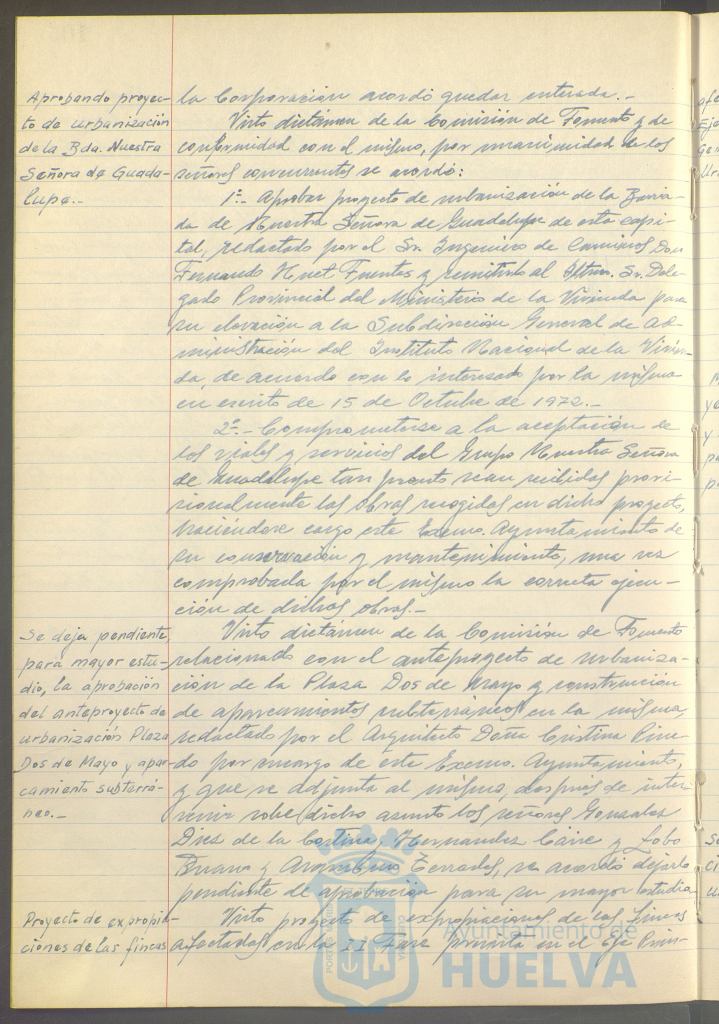 Aprobando proyec-
to de urbanización
de la Bda. Nuestra
Señora de Guada-
lupe.-
la Corporación acordó quedar enterada.-
Visto dictámen de la Comisión de Fomento y de
conformidad con el mismo, por unanimidad de los
señores concurrentes se acordó:
1º.- Aprobar proyecto de urbanización de la Barria-
da de Nuestra Señora de Guadalupe de esta capi-
tal, redactado por el Sr. Ingeniero de Caminos Don
Fernando Nuet Fuentes y remitirlo al Iltmo. Sr. Dele-
gado Provincial del Ministerio de la Vivienda para
su elevación a la Subdirección General de Ad-
ministración del Instituto Nacional de la Vivien-
da, de acuerdo con lo interesado por la misma
en escrito de 15 de Octubre de 1972.-
2º.- Comprometerse a la aceptación de
los viales y servicios del Grupo Nuestra Señora
de Guadalupe tan pronto sean recibidas provi-
sionalmente las obras recogidas en dicho proyecto,
haciéndose cargo este Excmo. Ayuntamiento de
su conservación y mantenimiento, una vez
comprobada por el mismo la correcta ejecu-
ción de dichas obras.-
Se deja pendiente,
para mayor estu-
dio, la aprobación
del anteproyecto de
urbanización Plaza
Dos de Mayo y apar-
camiento subterrá-
neo.-
Visto dictámen de la Comisión de Fomento
relacionado con el anteproyecto de urbaniza-
ción de la Plaza Dos de Mayo y construcción
de aparcamientos subterraneos en la misma,
redactado por el Arquitecto Doña Cristina
por encargo de este Excmo. Ayuntamiento,
y que se adjunta al mismo, después de inter-
venir sobre dicho asunto los señores Gonzalez
Diez de la Cortina, Hernandez Cáire y Lobo
y Terrades, se acordó dejarlo
pendiente de aprobación para su mayor estudio
Proyecto de expropia-
ciones de las fincas
Visto proyecto de expropiaciones de las fincas
afectadas en la II Fase prevista en el Eje
Ayuntamiento de
HUELVA